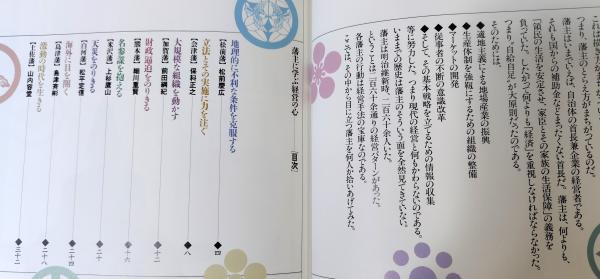 つまり、藩主のとらえ方がまちがっているのだ。
藩主はいまでいえば、自治体の首長兼企業の経営者である。
それも国からの補助金などまったくない首長だ。藩主は、何よりも、
「領民の生活を安定させ、家臣とその家族の生活保障」の義務を
負っていた。したがって何よりも「経済」を重視しなければならなかった。
つまり"自給自足"が大原則だったのである。
そのためには、
◆適地主義による地場産業の振興
◆生産体制を強靱にするための組織の整備
◆マーケットの開発
◆従事者の不断の意識改革
◆そして、その基本戦略を立てるための情報の収集
等に努力した。つまり現代の経営と何もかわらないのである。
いままでの歴史は藩主のそういう面を全然見てきていない。
藩主は明治維新時、二百六十余人いた。
ということは二百六十余通りの経営パターンがあった。
各藩主の行動は経営手法の宝庫なのである。
ここでは、その中から目に立つ藩主を何人か拾いあげてみた。
藩主に学ぶ経営の心
[目次]
地理的に不利な条件を克服する
【松前藩】 松前慶広 四
立法とその実施に力を注ぐ
【会津藩】 保科正之 八
大規模な組織を動かす
【加賀藩】 前田綱紀 十二
財政逼迫をのりきる
【熊本藩】 細川重賢 十六
名参謀を抱える
【米沢藩】 上杉鷹山 二十
天災をのりきる
【白河藩】 松平定信 二十四
海外に目を開く
【島津藩】 島津斉彬 二十八
激動の時代を生きる
【土佐藩】 山内容堂 三十二